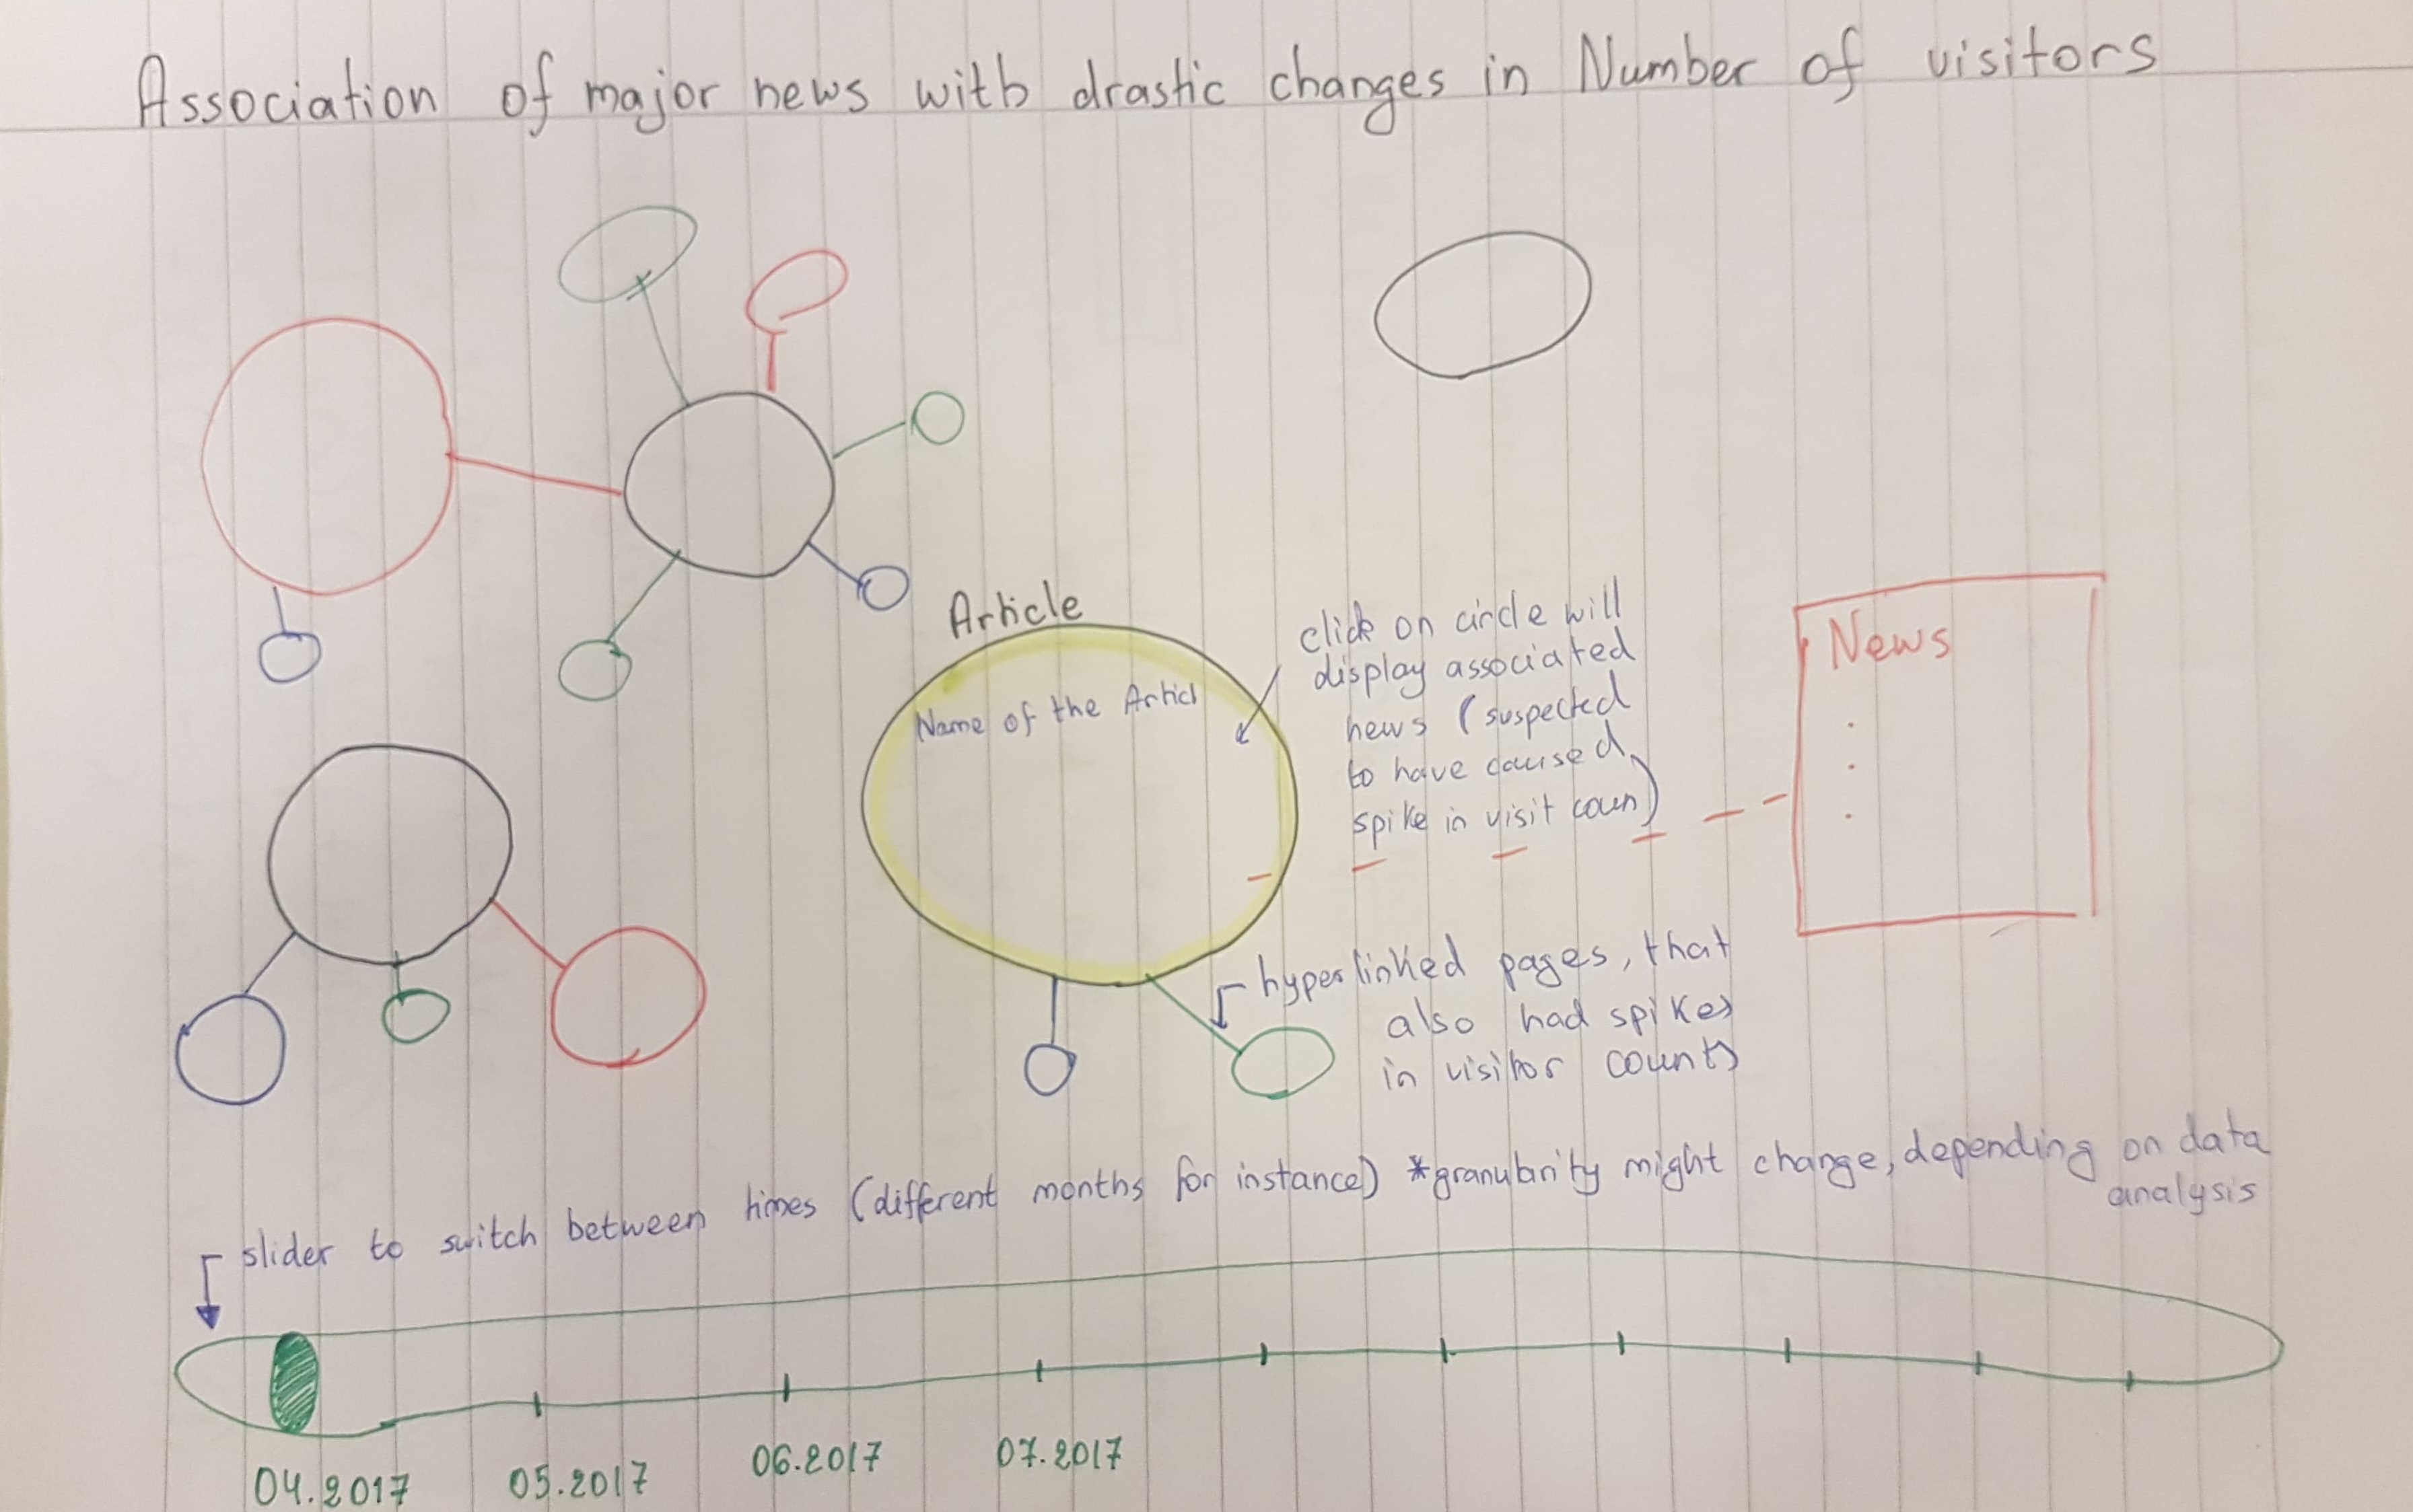 Association of major news with drastic changes in Number of visitors
Article
Name of the Articl
click on circle will
display associated
news (suspected
to have caused
spike in visit coun)
News
hyperlinked pages, that
also had spikes
in visitor counts
slider to switch between times (different months for instance) *granularity might change, depending on data
analysis
04.2017
05.2017
06.2017
07.2017